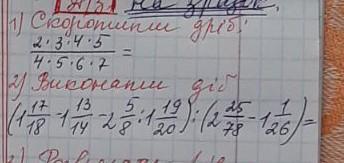 на зразок.
1) Скоротити дріб:
2·3·4·5 / 4·5·6·7 =
2) Виконати дії
(1 17/18 · 1 13/14 - 2 5/8 : 1 19/20) : (2 25/78 - 1 1/26) =